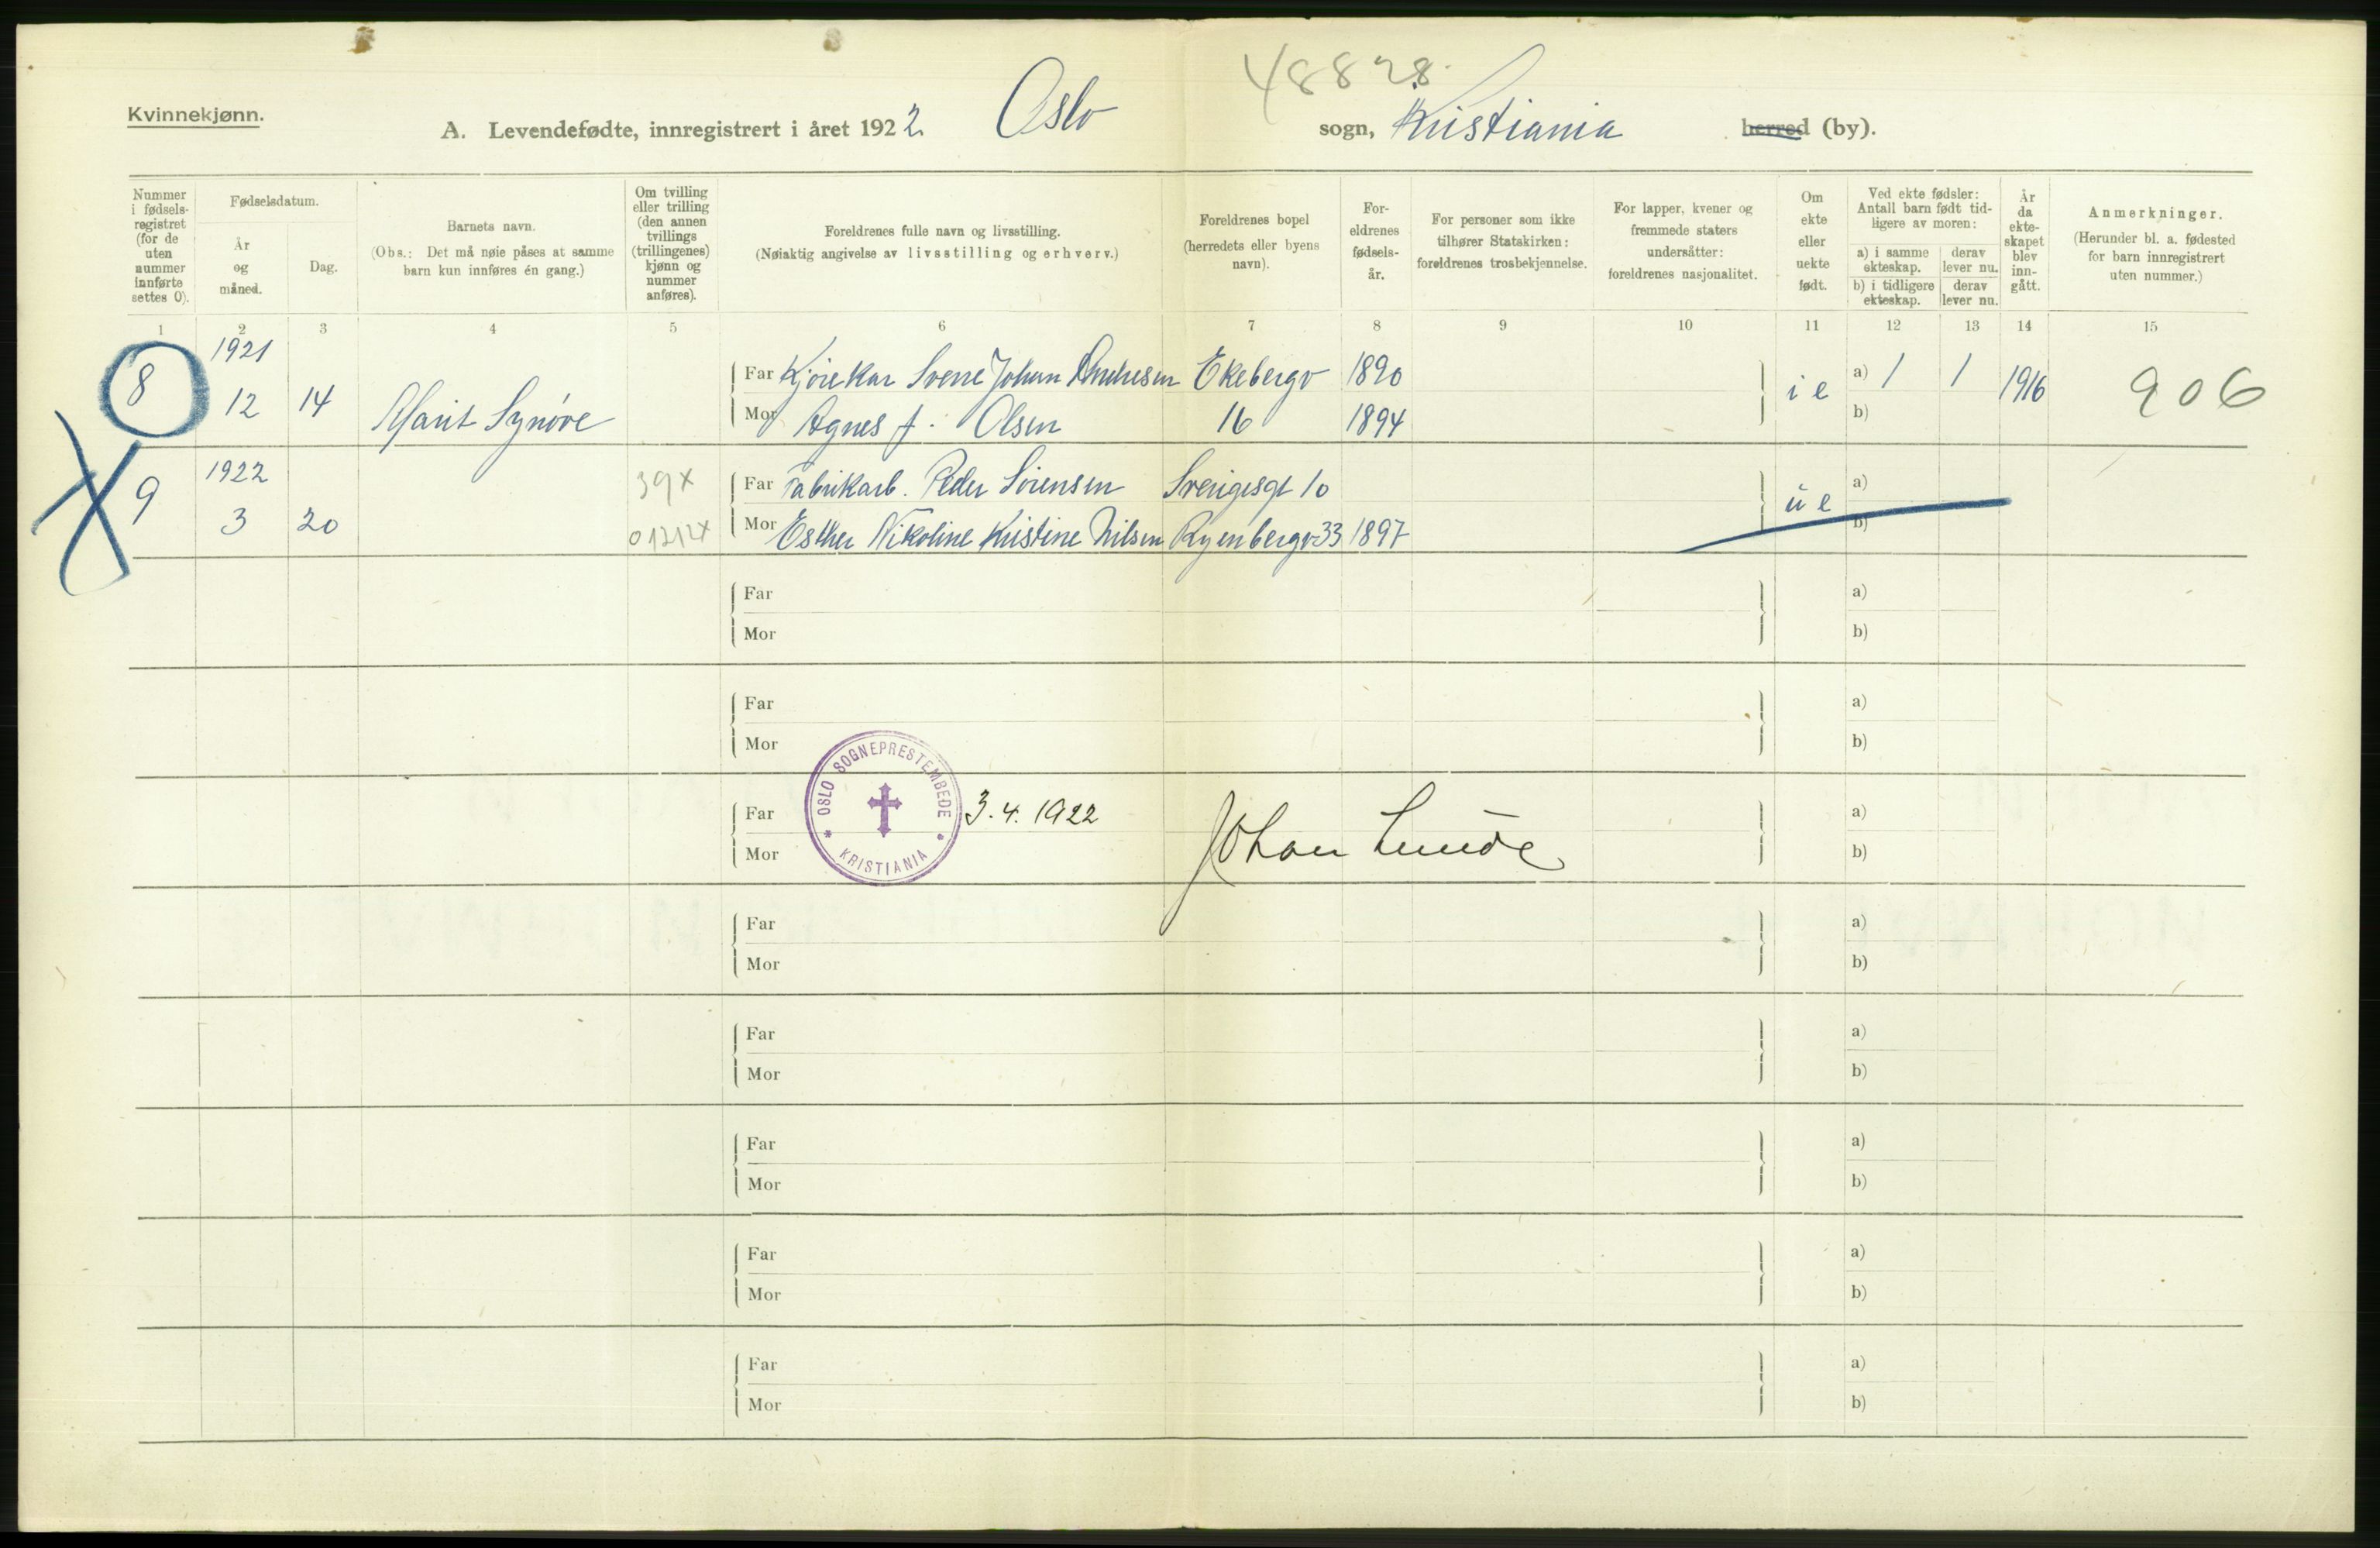 48828
Kvinnekjønn.
A. Levendefødte, innregistrert i året 1922. Oslo sogn, Kristiania herred (by).
Nummer i fødsels-registret (for de uten nummer innførte settes 0).
Fødselsdatum.
År og måned.
Dag.
Barnets navn.
(Obs.: Det må nøie påses at samme barn kun innføres én gang.)
Om tvilling eller trilling (den annen tvillings (trillingenes) kjønn og nummer anføres).
Foreldrenes fulle navn og livsstilling.
(Nøiaktig angivelse av livsstilling og erhverv.)
Foreldrenes bopel (herredets eller byens navn).
For-eldrenes fødsels-år.
For personer som ikke tilhører Statskirken: foreldrenes trosbekjennelse.
For lapper, kvener og fremmede staters undersåtter: foreldrenes nasjonalitet.
Om ekte eller uekte født.
Ved ekte fødsler: Antall barn født tid-ligere av moren:
a) i samme ekteskap.
derav lever nu.
b) i tidligere ekteskap.
derav lever nu.
År da ekte-skapet blev inn-gått.
Anmerkninger.
(Herunder bl. a. fødested for barn innregistrert uten nummer.)
1 2 3 4 5 6 7 8 9 10 11 12 13 14 15
1921
8 12 14 Marit Synøve
Far Kjørekar Sverre Johan Andresen Ekebergv 1890
Mor Agnes f. Olsen 16 1894
i e a) 1 1 1916 906
b)
1922
9 3 20
39x
01212x
Far Fabrikarb. Peder Sørensen Sverigesgt 10
Mor Esther Nikoline Kristine Nilsen Ryenbergv 33 1897
u e a)
b)
Far a)
Mor b)
Far a)
Mor b)
OSLO SOGNEPRESTEMBEDE
KRISTIANIA
Far 3.4.1922 a)
Mor Johan Lunde b)
Far a)
Mor b)
Far a)
Mor b)
Far a)
Mor b)
Far a)
Mor b)
Far a)
Mor b)